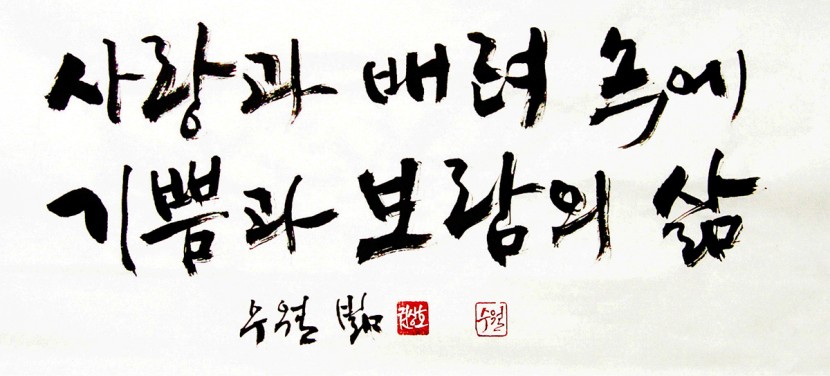 사랑과 배려 속에
기쁨과 보람의 삶
우월
수월